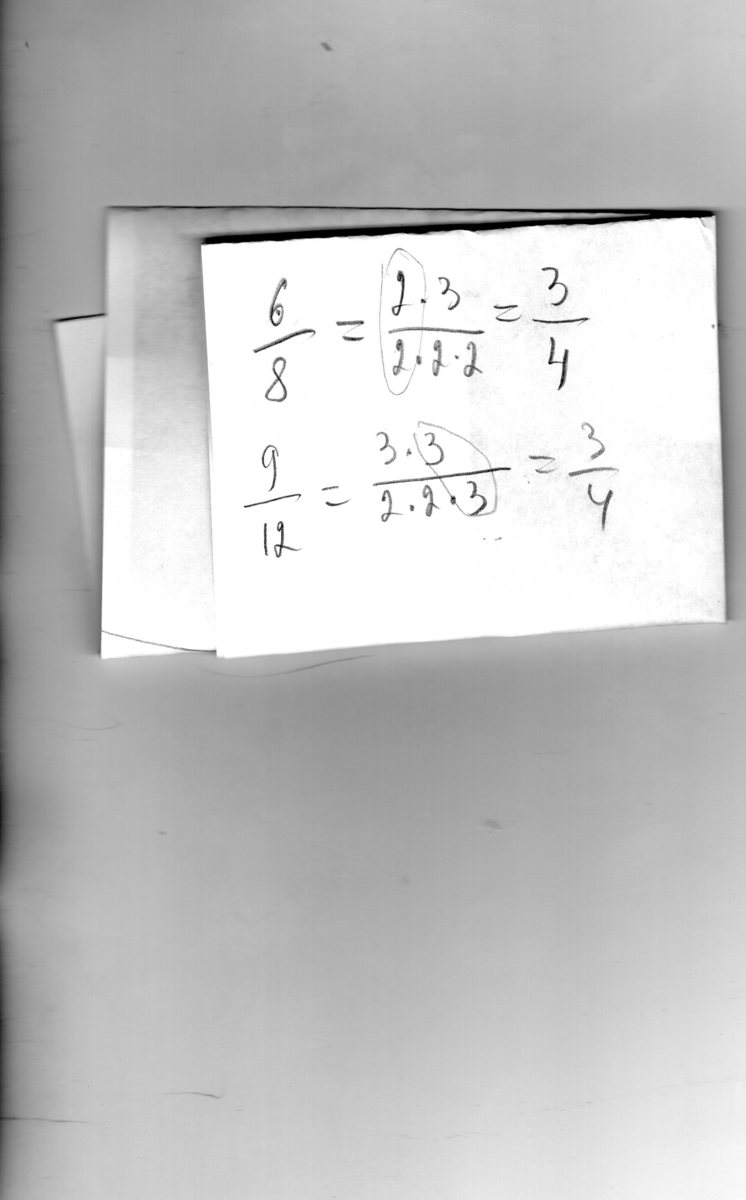 6/8 = 2·3/2·2·2 = 3/4
9/12 = 3·3/2·2·3 = 3/4